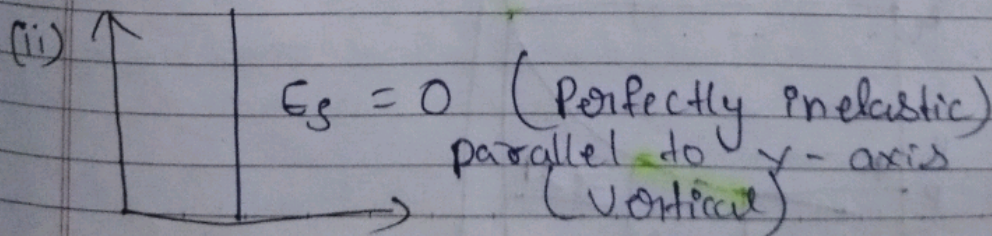 (ii) Es = 0 (Perfectly inelastic)
parallel to y-axis
(Vertical)